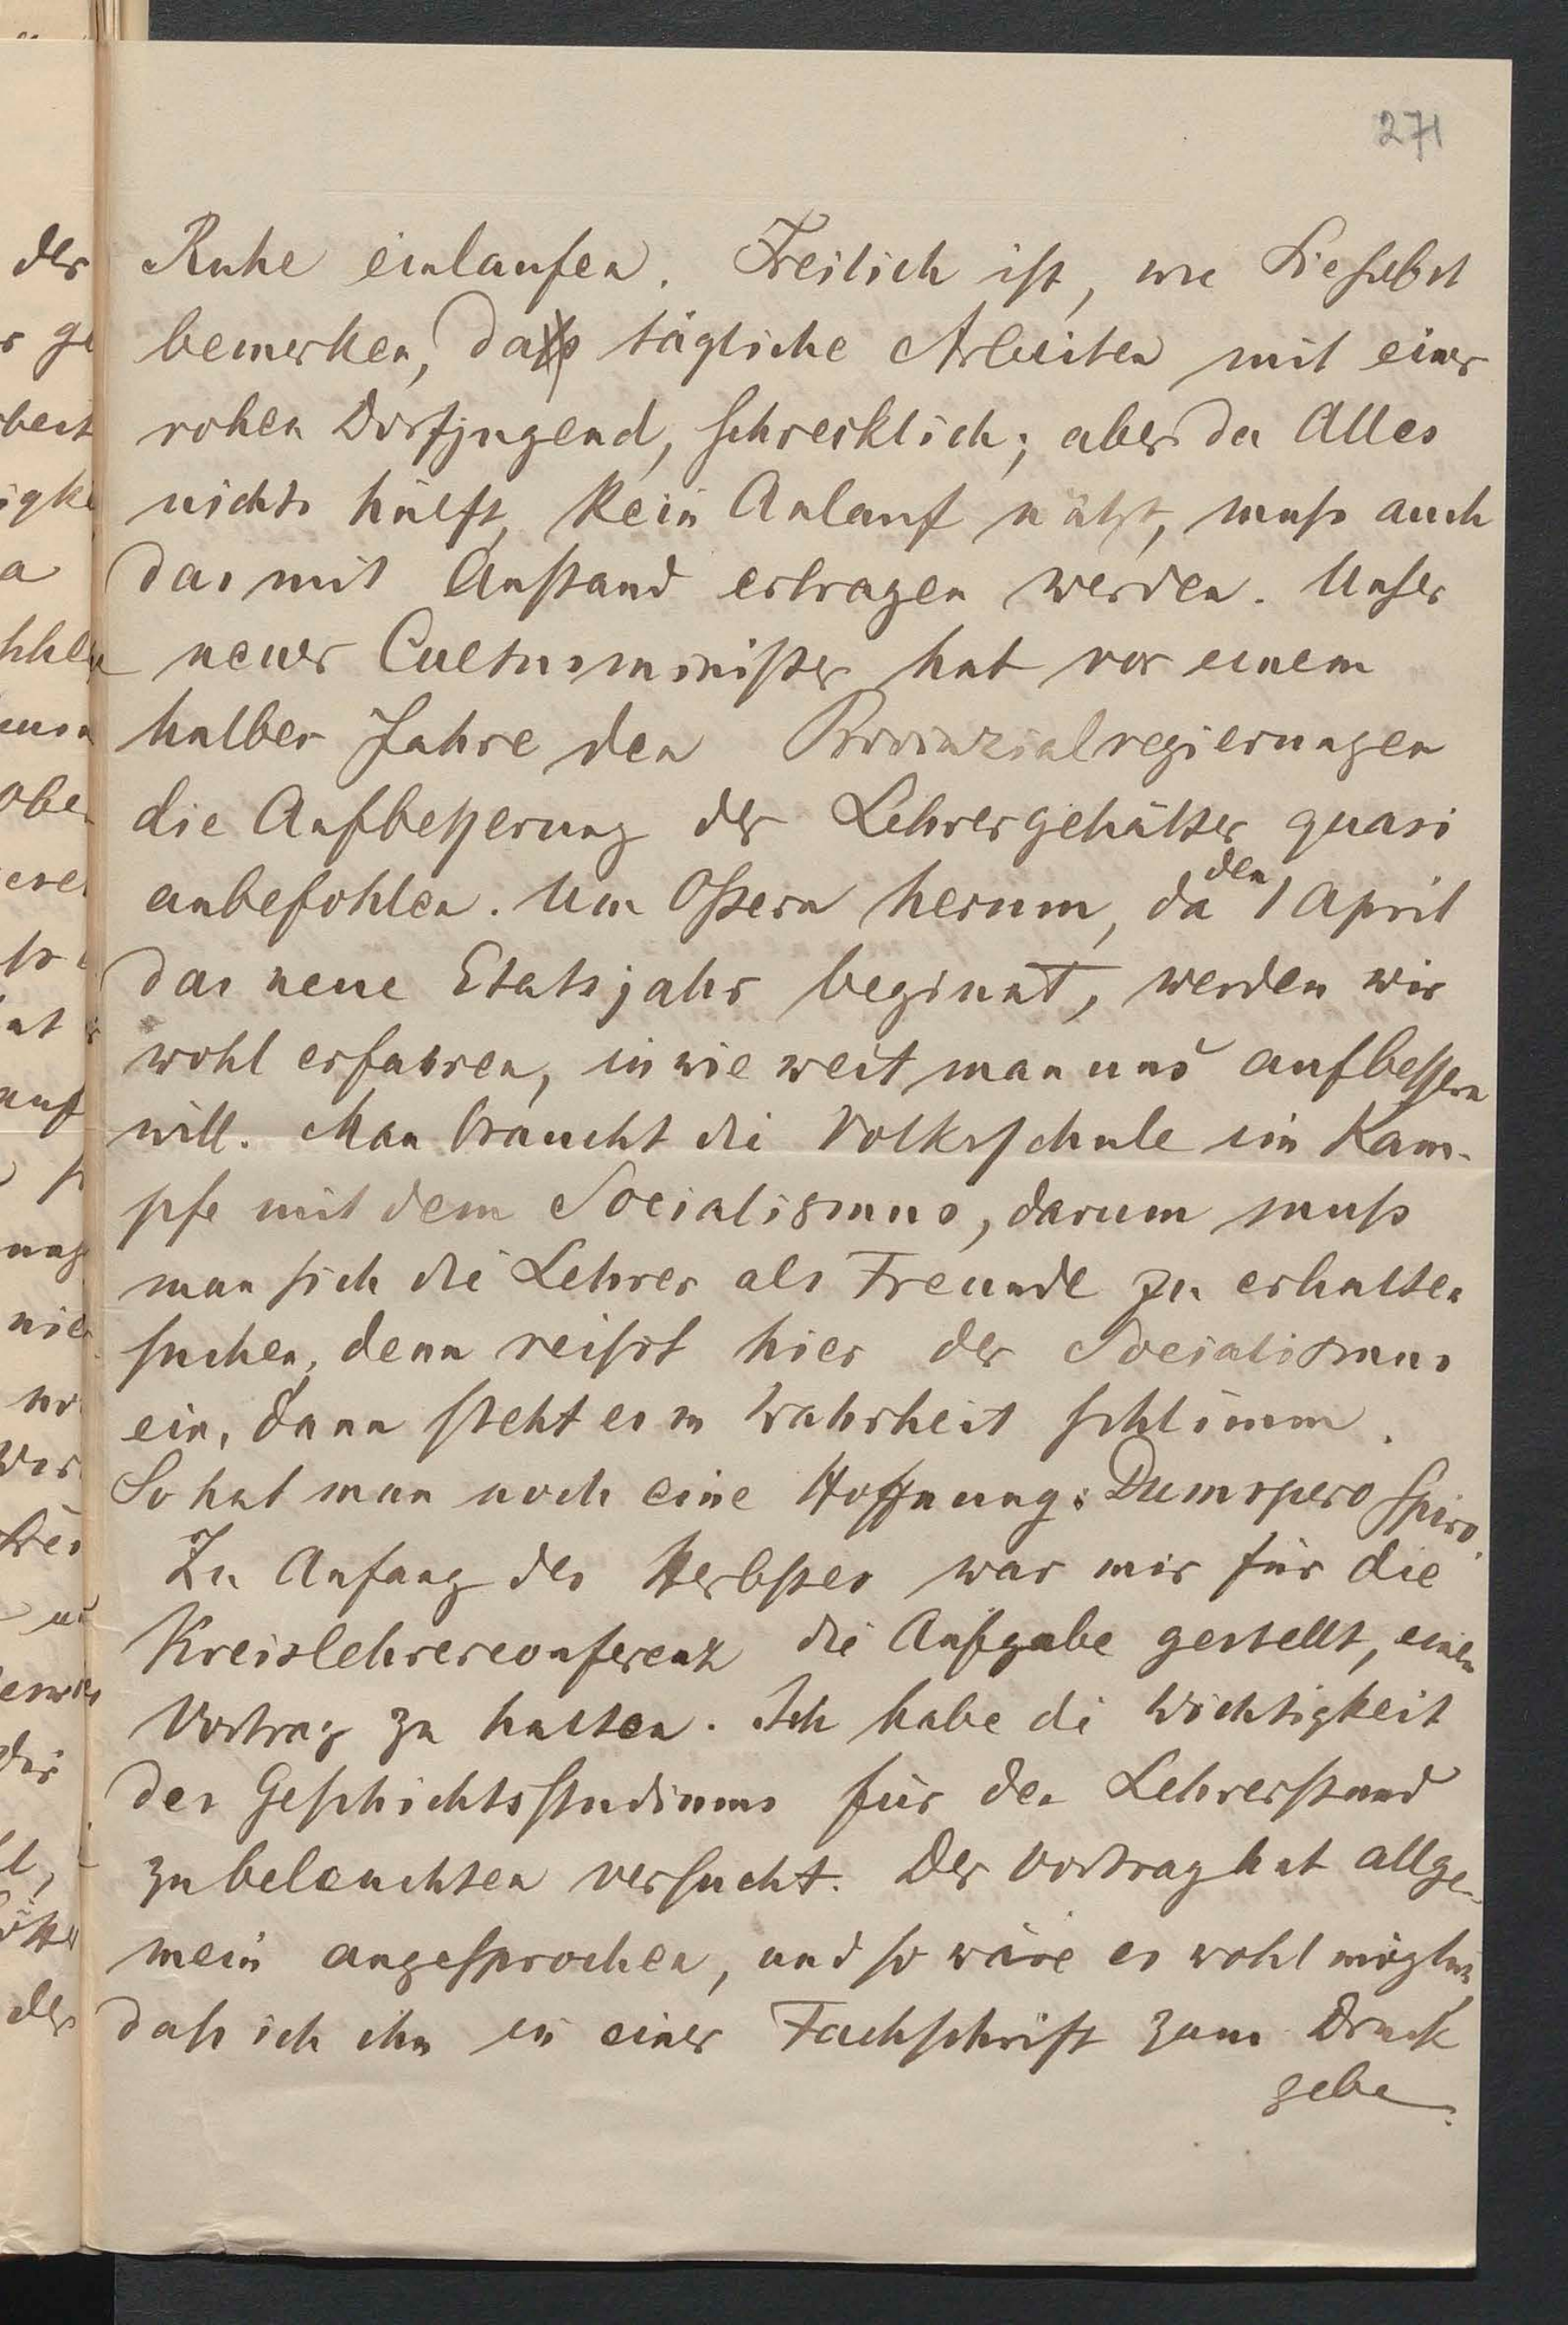 271
Ruhe einlaufen. Freilich ist, wie Sie selbst
bemerken, das tägliche Arbeiten mit einer
rohen Dorfjugend, schrecklich; aber da Alles
nichts hülft, kein Anlauf nützt, muß auch
das mit Anstand ertragen werden. Unser
neuer Cultusminister hat vor einem
halben Jahre den Provinzialregierungen
die Aufbesserung der Lehrergehälter quasi
anbefohlen. Um Ostern herum, da den 1 April
das neue Etatsjahr beginnt, werden wir
wohl erfahren, in wie weit man uns aufbessern
will. Man braucht die Volksschule im Kam-
pfe mit dem Socialismus, darum muß
man sich die Lehrer als Freunde zu erhalten
suchen, denn reißt hier der Socialismus
ein, dann steht es in Wahrheit schlimm.
So hat man noch eine Hoffnung: Dum spero spiro.
Zu Anfang des Herbstes war mir für die
Kreislehrerconferenz die Aufgabe gestellt, einen
Vortrag zu halten. Ich habe die Wichtigkeit
des Geschichtsstudiums für den Lehrerstand
zu beleuchten versucht. Der Vortrag hat allge-
mein angesprochen, und so wäre es wohl möglich,
daß ich ihn in einer Fachschrift zum Druck
gebe.